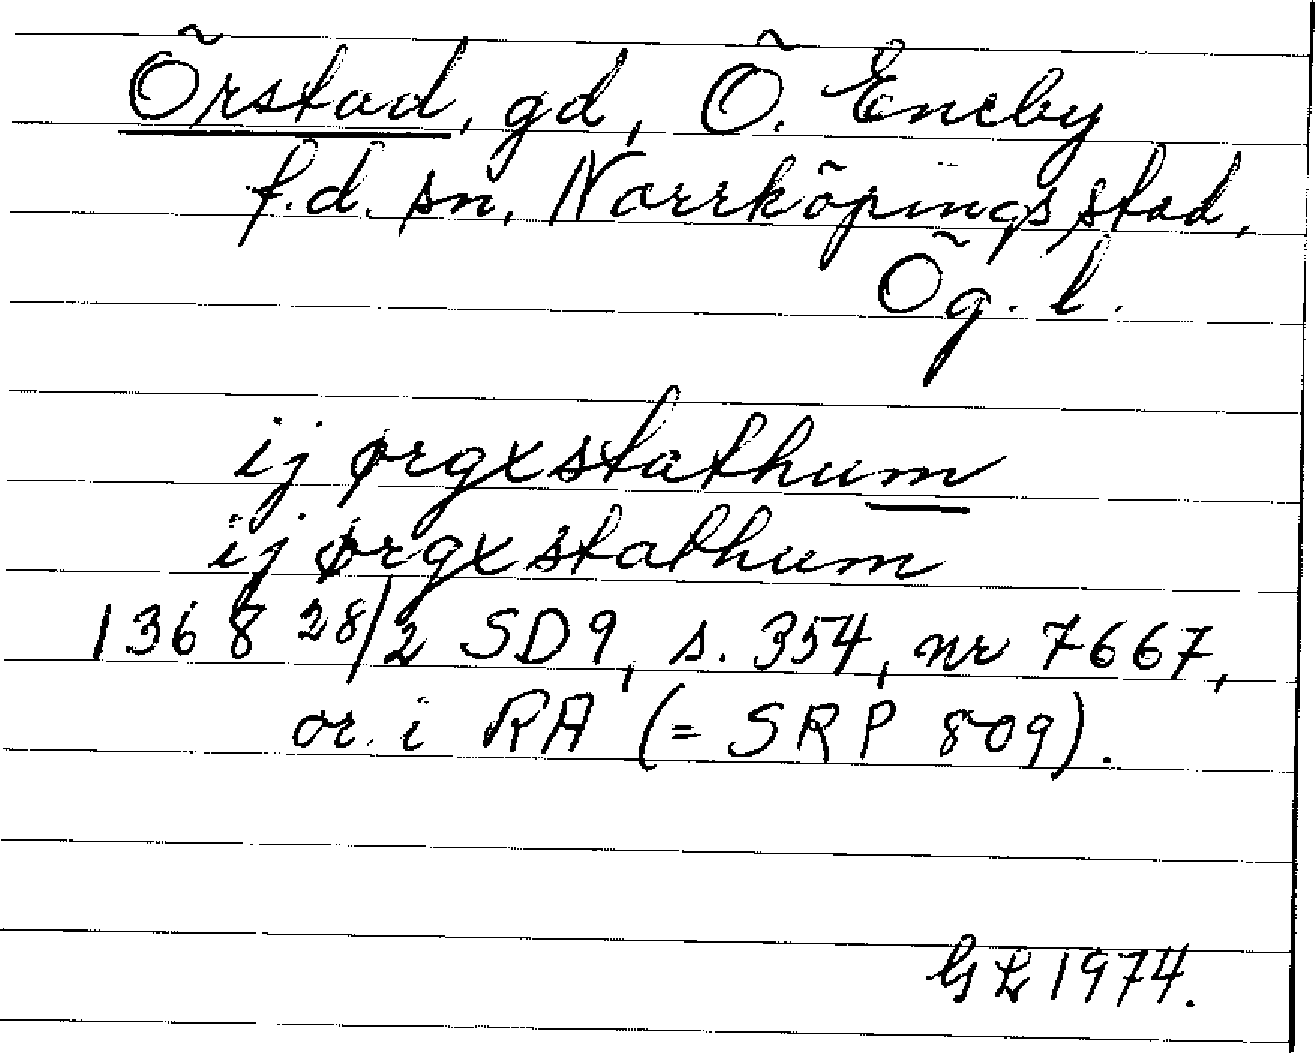 Örstad, gd, Ö. Eneby
f.d. sn, Norrköpings stad,
Ög. l.
ij ørgxstathum
ij ørgxstathum
1368 28/2 SD9, s. 354, nr 7667,
or. i RA (= SRP 809).
1974.